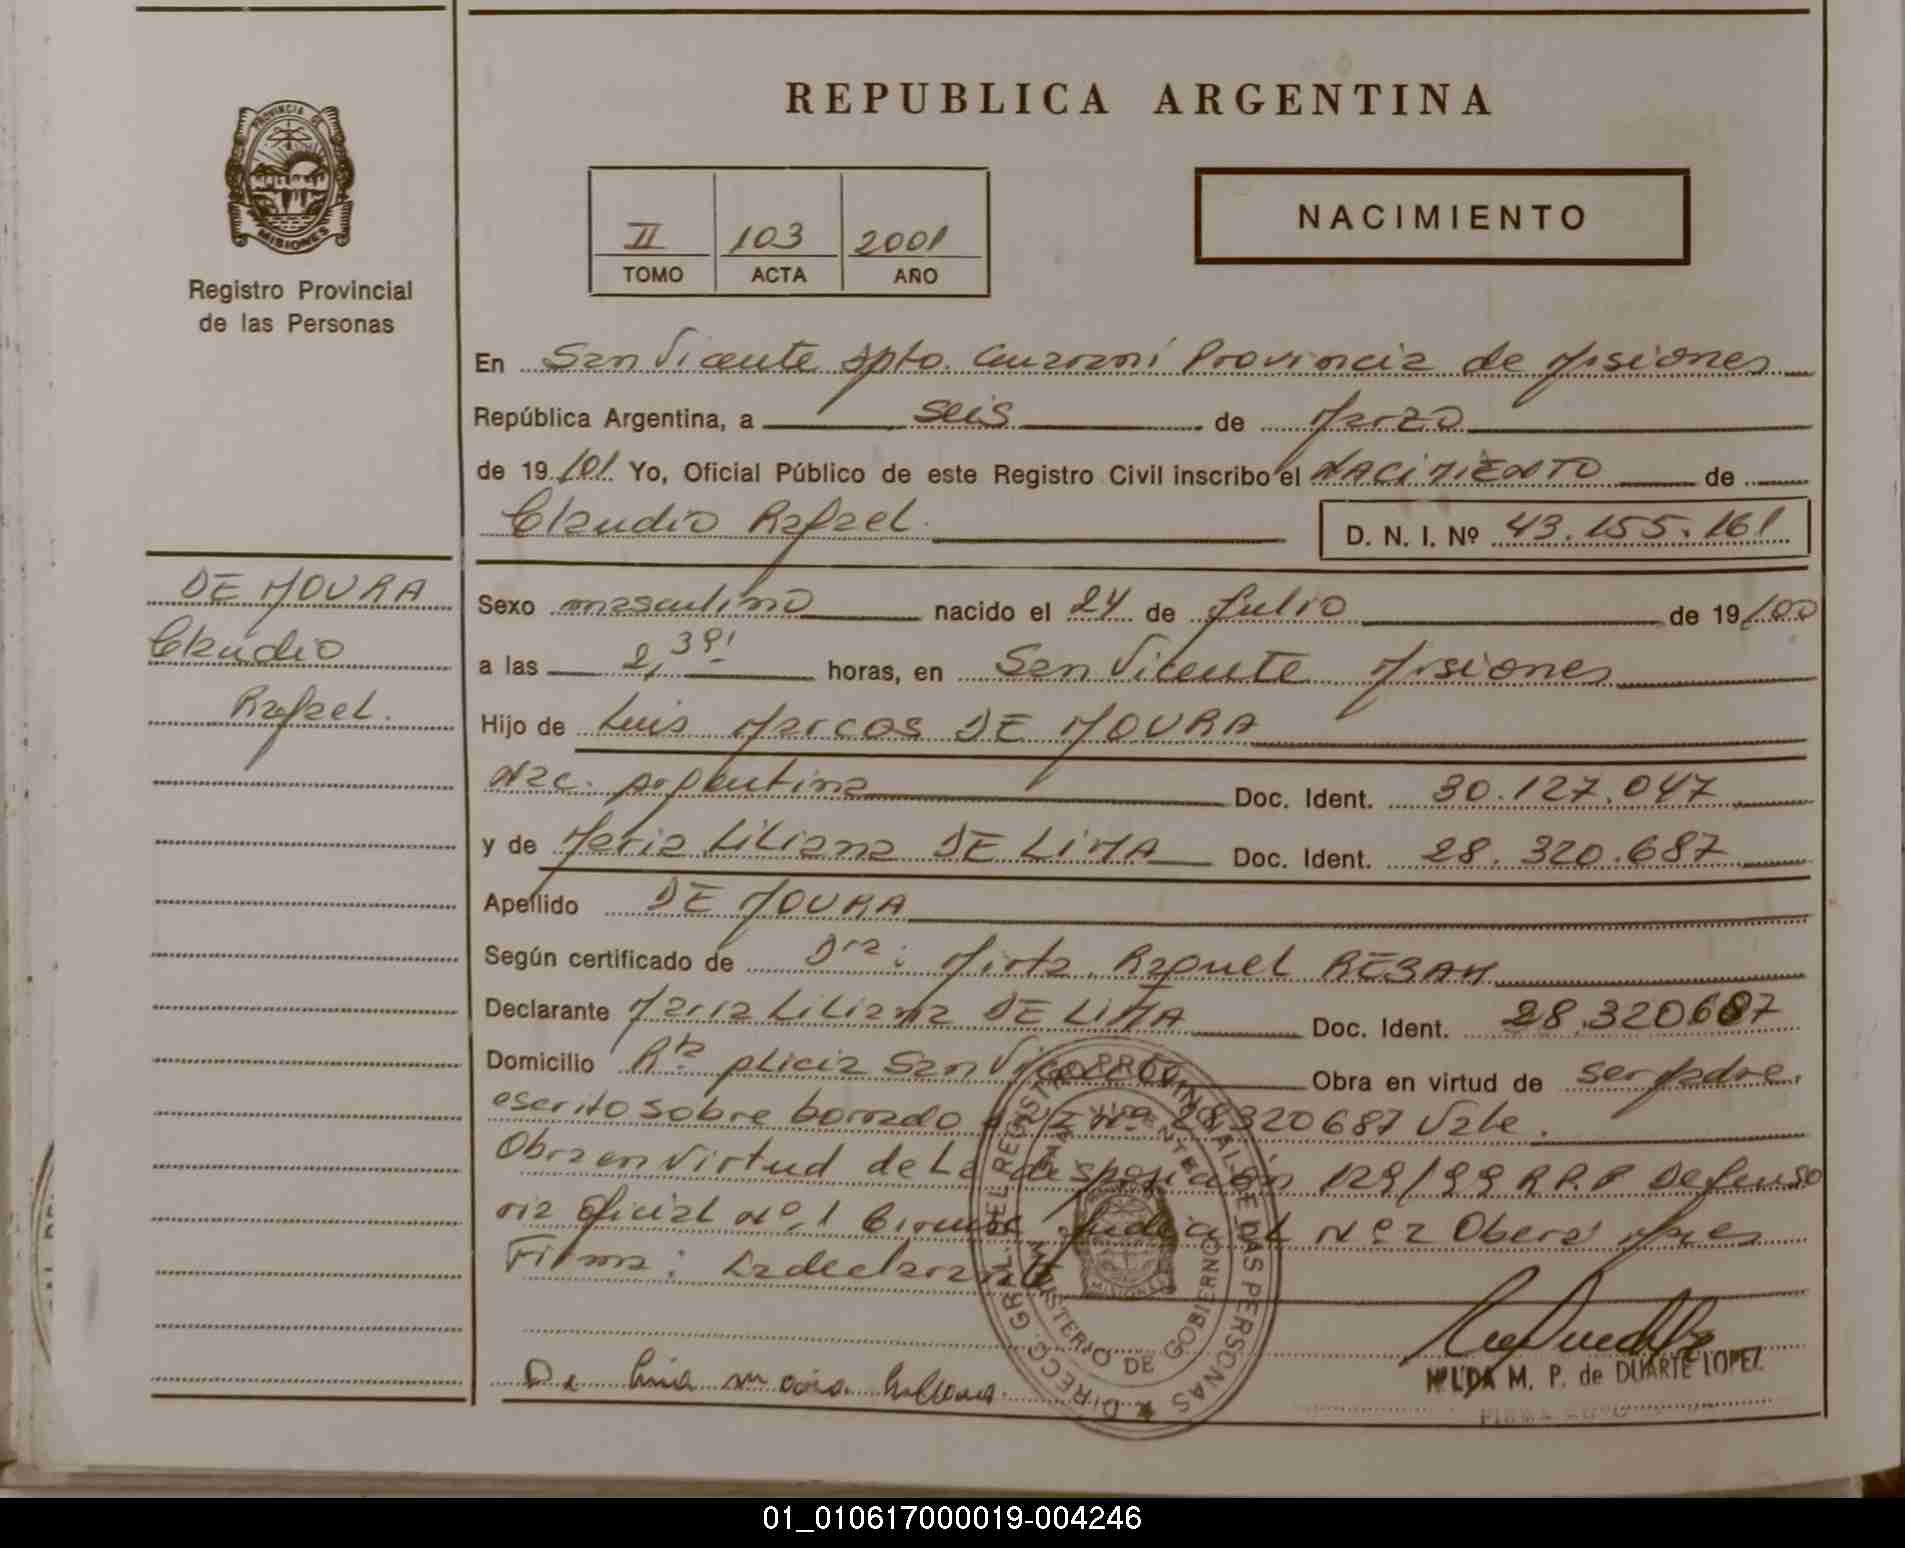 PROVINCIA DE
MISIONES
Registro Provincial
de las Personas
DE MOURA
Claudio
Rafael.
REPUBLICA ARGENTINA
II 103 2001
TOMO ACTA AÑO
NACIMIENTO
En San Vicente Dpto. Guaraní Provincia de Misiones
República Argentina, a seis de Marzo
de 19/01. Yo, Oficial Público de este Registro Civil inscribo el NACIMIENTO de
Claudio Rafael. D. N. I. Nº 43.155.161
Sexo masculino nacido el 24 de Julio de 19/00
a las 2,39' horas, en San Vicente Misiones
Hijo de Luis Marcos DE MOURA
Nac. Argentina Doc. Ident. 30.127.047
y de Maria Liliana DE LIMA Doc. Ident. 28.320.687
Apellido DE MOURA
Según certificado de Dra: Mirta Raquel
Declarante Maria Liliana DE LIMA Doc. Ident. 28.320687
Domicilio San Vicente Obra en virtud de ser Padre.
escrito sobre borrado Nº 28320687 Vale.
Obra en virtud de La disposición 129/99 R.P.P Defenso
ria Oficial Nº 1 Circunsc Judicial Nº 2 Obera Mnes
Firma: La declarante
De Lima maria liliana
DIRECC. GRAL. DEL REGISTRO PROVINCIAL DE LAS PERSONAS
SAN VICENTE
MISIONES
MINISTERIO DE GOBIERNO
HILDA M. P. de DUARTE LOPEZ
01_010617000019-004246